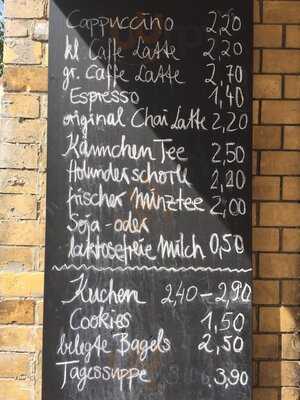 Cappuccino 2,20
kl Caffe Latte 2,20
gr. Caffe Latte 2,70
Espresso 1,40
original Chai Latte 2,20
Kännchen Tee 2,50
Holunderschorle 2,20
frischer Minztee 2,00
Soja- oder
laktosefreie Milch 0,50
Kuchen 2,40 - 2,90
Cookies 1,50
belegte Bagels 2,50
Tagessuppe 3,90